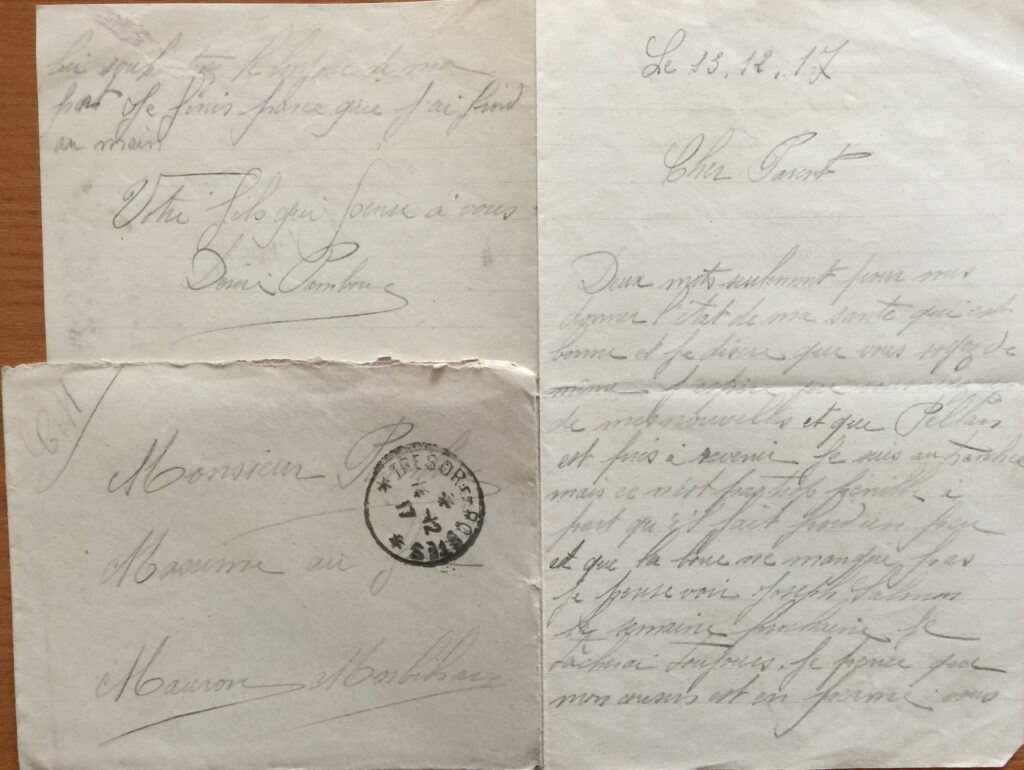 Le 13.12.17
Cher Parent
Deux mots seulement pour vous
donner l'état de ma santé qui est
bonne et je désire que vous soyez de
même J'espère que vous
de mes nouvelles et que Pellan
est près à revenir Je suis au
mais ce n'est pas trop pénible à
part qu'il fait froid un peu
et que la boue ne manque pas
Je pense voir Joseph Salmon
la semaine prochaine Je
tâcherai toujours. Je pense que
mon cousin est en perme vous
lui souhaiterez le bonjour de ma
part Je finis parce que j'ai froid
au main
Votre fils qui pense à vous
Désiré
Monsieur
Masurine au
Mauron Morbihan
TRESOR ET POSTES
14 -12
17